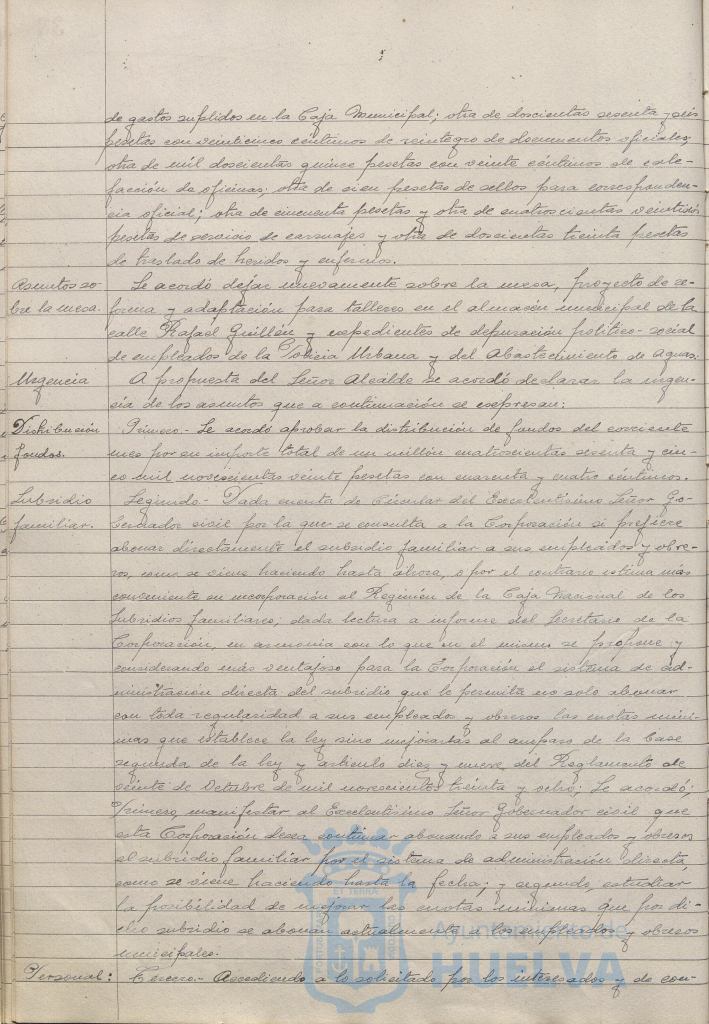 de gastos suplidos en la Caja Municipal; otra de doscientas sesenta y seis
pesetas con veinticinco céntimos de reintegro de documentos oficiales,
otra de mil doscientas quince pesetas con veinte céntimos de cale-
facción de oficinas; otra de cien pesetas de sellos para corresponden-
cia oficial; otra de cincuenta pesetas y otra de cuatrocientas veintiséis
pesetas de servicio de carruajes y otra de doscientas treinta pesetas
de traslado de heridos y enfermos.
Asuntos so-
bre la mesa.
Se acordó dejar nuevamente sobre la mesa, proyecto de re-
forma y adaptación para talleres en el almacén municipal de la
calle Rafael Guillén y expedientes de depuración político-social
de empleados de la Policía Urbana y del Abastecimiento de Aguas.
Urgencia
A propuesta del Señor Alcalde se acordó declarar la urgen-
cia de los asuntos que a continuación se expresan:
Distribución
fondos.
Primero.- Se acordó aprobar la distribución de fondos del corriente
mes por su importe total de un millón cuatrocientas sesenta y cin-
co mil novecientas veinte pesetas con cuarenta y cuatro céntimos.
Subsidio
familiar.
Segundo.- Dada cuenta de circular del Excelentísimo Señor Go-
bernador civil por la que se consulta a la Corporación si prefiere
abonar directamente el subsidio familiar a sus empleados y obre-
ros, como se viene haciendo hasta ahora, o por el contrario estima más
conveniente su incorporación al Regimén de la Caja Nacional de los
Subsidios familiares; dada lectura a informe del Secretario de la
Corporación, en armonía con lo que en el mismo se propone y
considerando más ventajoso para la Corporación el sistema de ad-
ministración directa del subsidio que le permita no solo abonar
con toda regularidad a sus empleados y obreros las cuotas míni-
mas que establece la ley sino mejorarlas al amparo de la base
segunda de la ley y artículo diez y nueve del Reglamento de
veinte de Octubre de mil novecientos treinta y ocho; Se acordó:
Primero, manifestar al Excelentísimo Señor Gobernador civil que
esta Corporación desea continuar abonando a sus empleados y obreros
el subsidio familiar por el sistema de administración directa,
como se viene haciendo hasta la fecha; y segundo, estudiar
la posibilidad de mejorar las cuotas mínimas que por di-
cho subsidio se abonan actualmente a los empleados y obreros
municipales.
Personal:
Tercero.- Accediendo a lo solicitado por los interesados y de con-
Ayuntamiento de
HUELVA